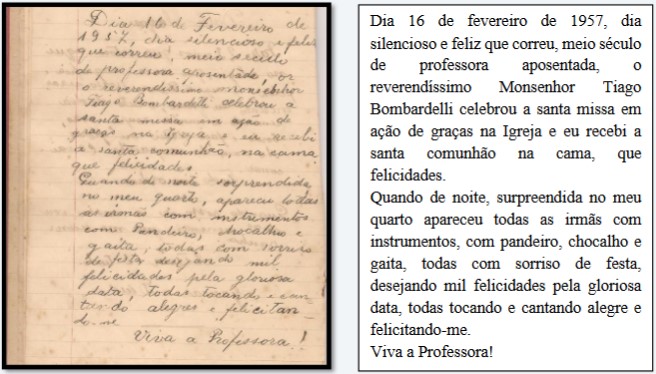 Dia 16 de Fevereiro de
1957, dia silencioso e feliz
que correu, meio seculo
de professora aposentada, 
o reverendissimo monsenhor
Tiago Bombardelli celebrou a
santa missa em ação de
graças na Igreja e eu recebi
a santa comunhão, na cama
que felicidades.
Quando de noite sorprendida
no meu quarto, apareceu todas
as irmãs com instrumentos
com Pandeiro, chocalho e
gaita, todas com sorriso
de festa desejando mil
felicidades pela gloriosa
data, todas tocando e can-
tando alegres e felicitan-
do-me
Viva a Professora!
Dia 16 de fevereiro de 1957, dia
silencioso e feliz que correu, meio século
de professora aposentada, o
reverendíssimo Monsenhor Tiago
Bombardelli celebrou a santa missa em
ação de graças na Igreja e eu recebi a
santa comunhão na cama, que
felicidades.
Quando de noite, surpreendida no meu
quarto apareceu todas as irmãs com
instrumentos, com pandeiro, chocalho e
gaita, todas com sorriso de festa,
desejando mil felicidades pela gloriosa
data, todas tocando e cantando alegre e
felicitando-me.
Viva a Professora!